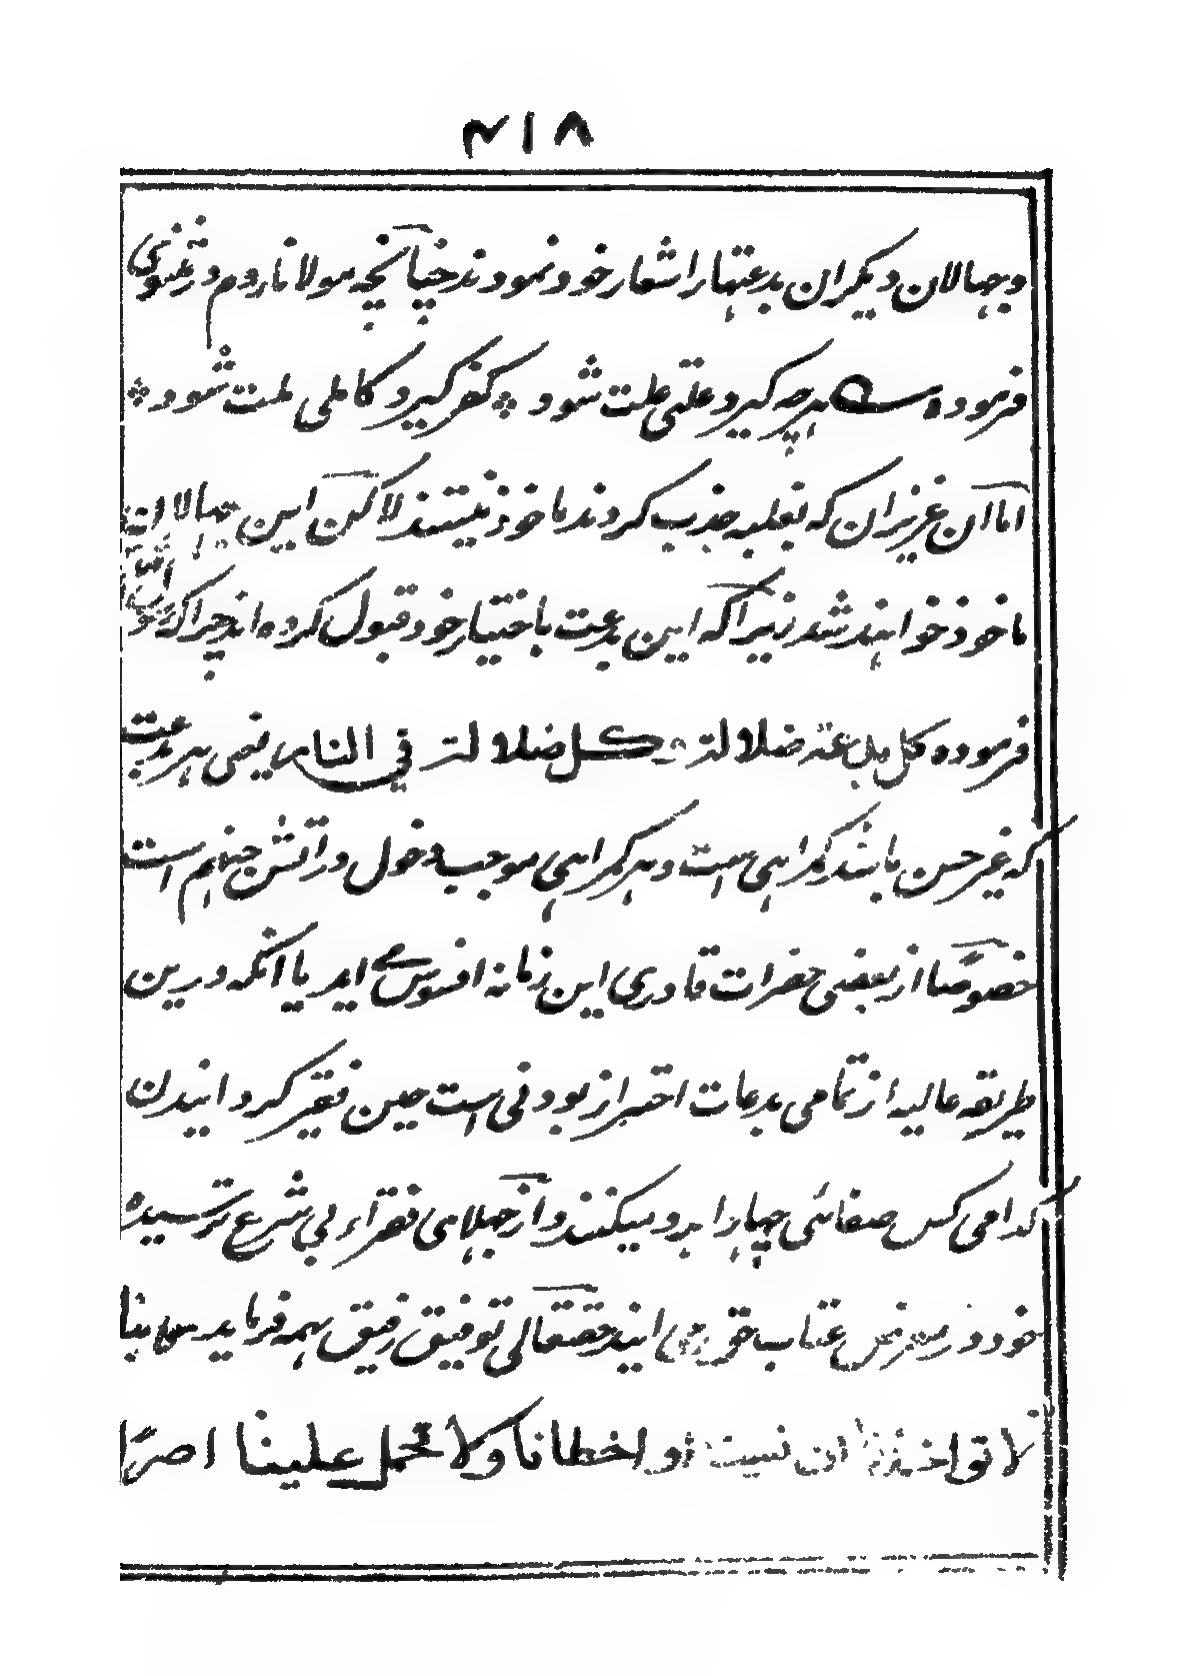 ۳۱۸
و جہالان دیکران بدعتہا را شعار خود نمودند چنانچہ مولانا روم در مثنوی
فرمودہ ہرچہ کیرد علتی علت شود ۞ کفر کیرد کاملی ملت شود ۞
اما آن عزیزان کہ بغلبہ جذب کردند ماخوذ نیستند لاکن این جہالان
ماخوذ خواہند شد زیرا کہ این بدعت باختیار خود قبول کردہ اند چرا کہ
فرمودہ کل بدعۃ ضلالۃ کل ضلالۃ فی النار یعنی ہر بدعت
کہ غیر حسن باشد کمراہی است و ہر کمراہی موجب دخول در آتش جہنم است
خصوصًا از بعضی حضرات قادری این زمانہ افسوس می اید با آنکہ درین
طریقہ عالیہ از تمامی بدعات احتراز بودنی است حین فقیر کردانیدن
کدامی کس صفائی چہار ابرو میکنند و از جہلای فقراء بی شرع ترسیدہ
خود در معرض عتاب حق می ایند حقتعالی توفیق رفیق ہمہ فرماید ربنا
لا تواخذنا ان نسینا او اخطانا ولا تحمل علینا اصرًا